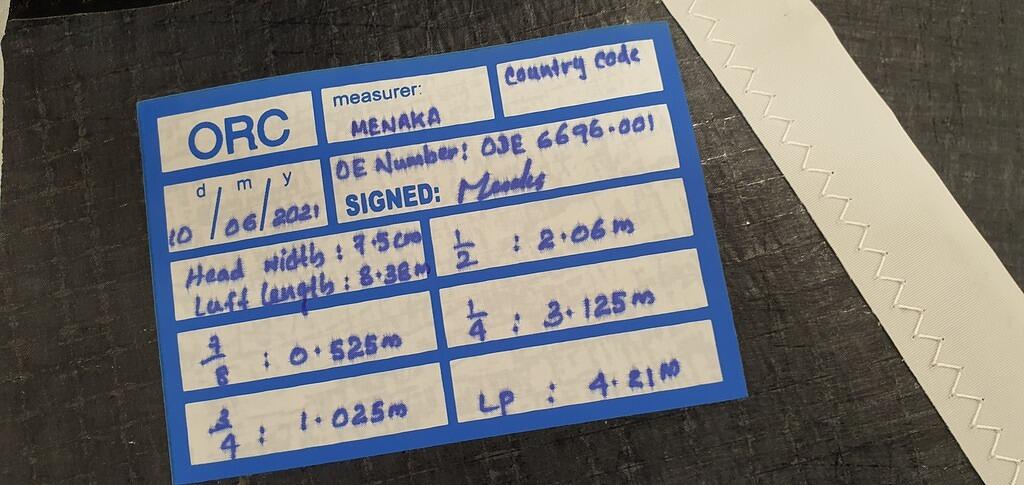 ORC
measurer:
MENAKA
Country code
OE Number: OJE 6696.001
SIGNED:
d / m / y
10 / 06 / 2021
Head width : 7.5cm
Luff length : 8.38m
1/2 : 2.06m
7/8 : 0.525m
1/4 : 3.125m
3/4 : 1.025m
LP : 4.21m